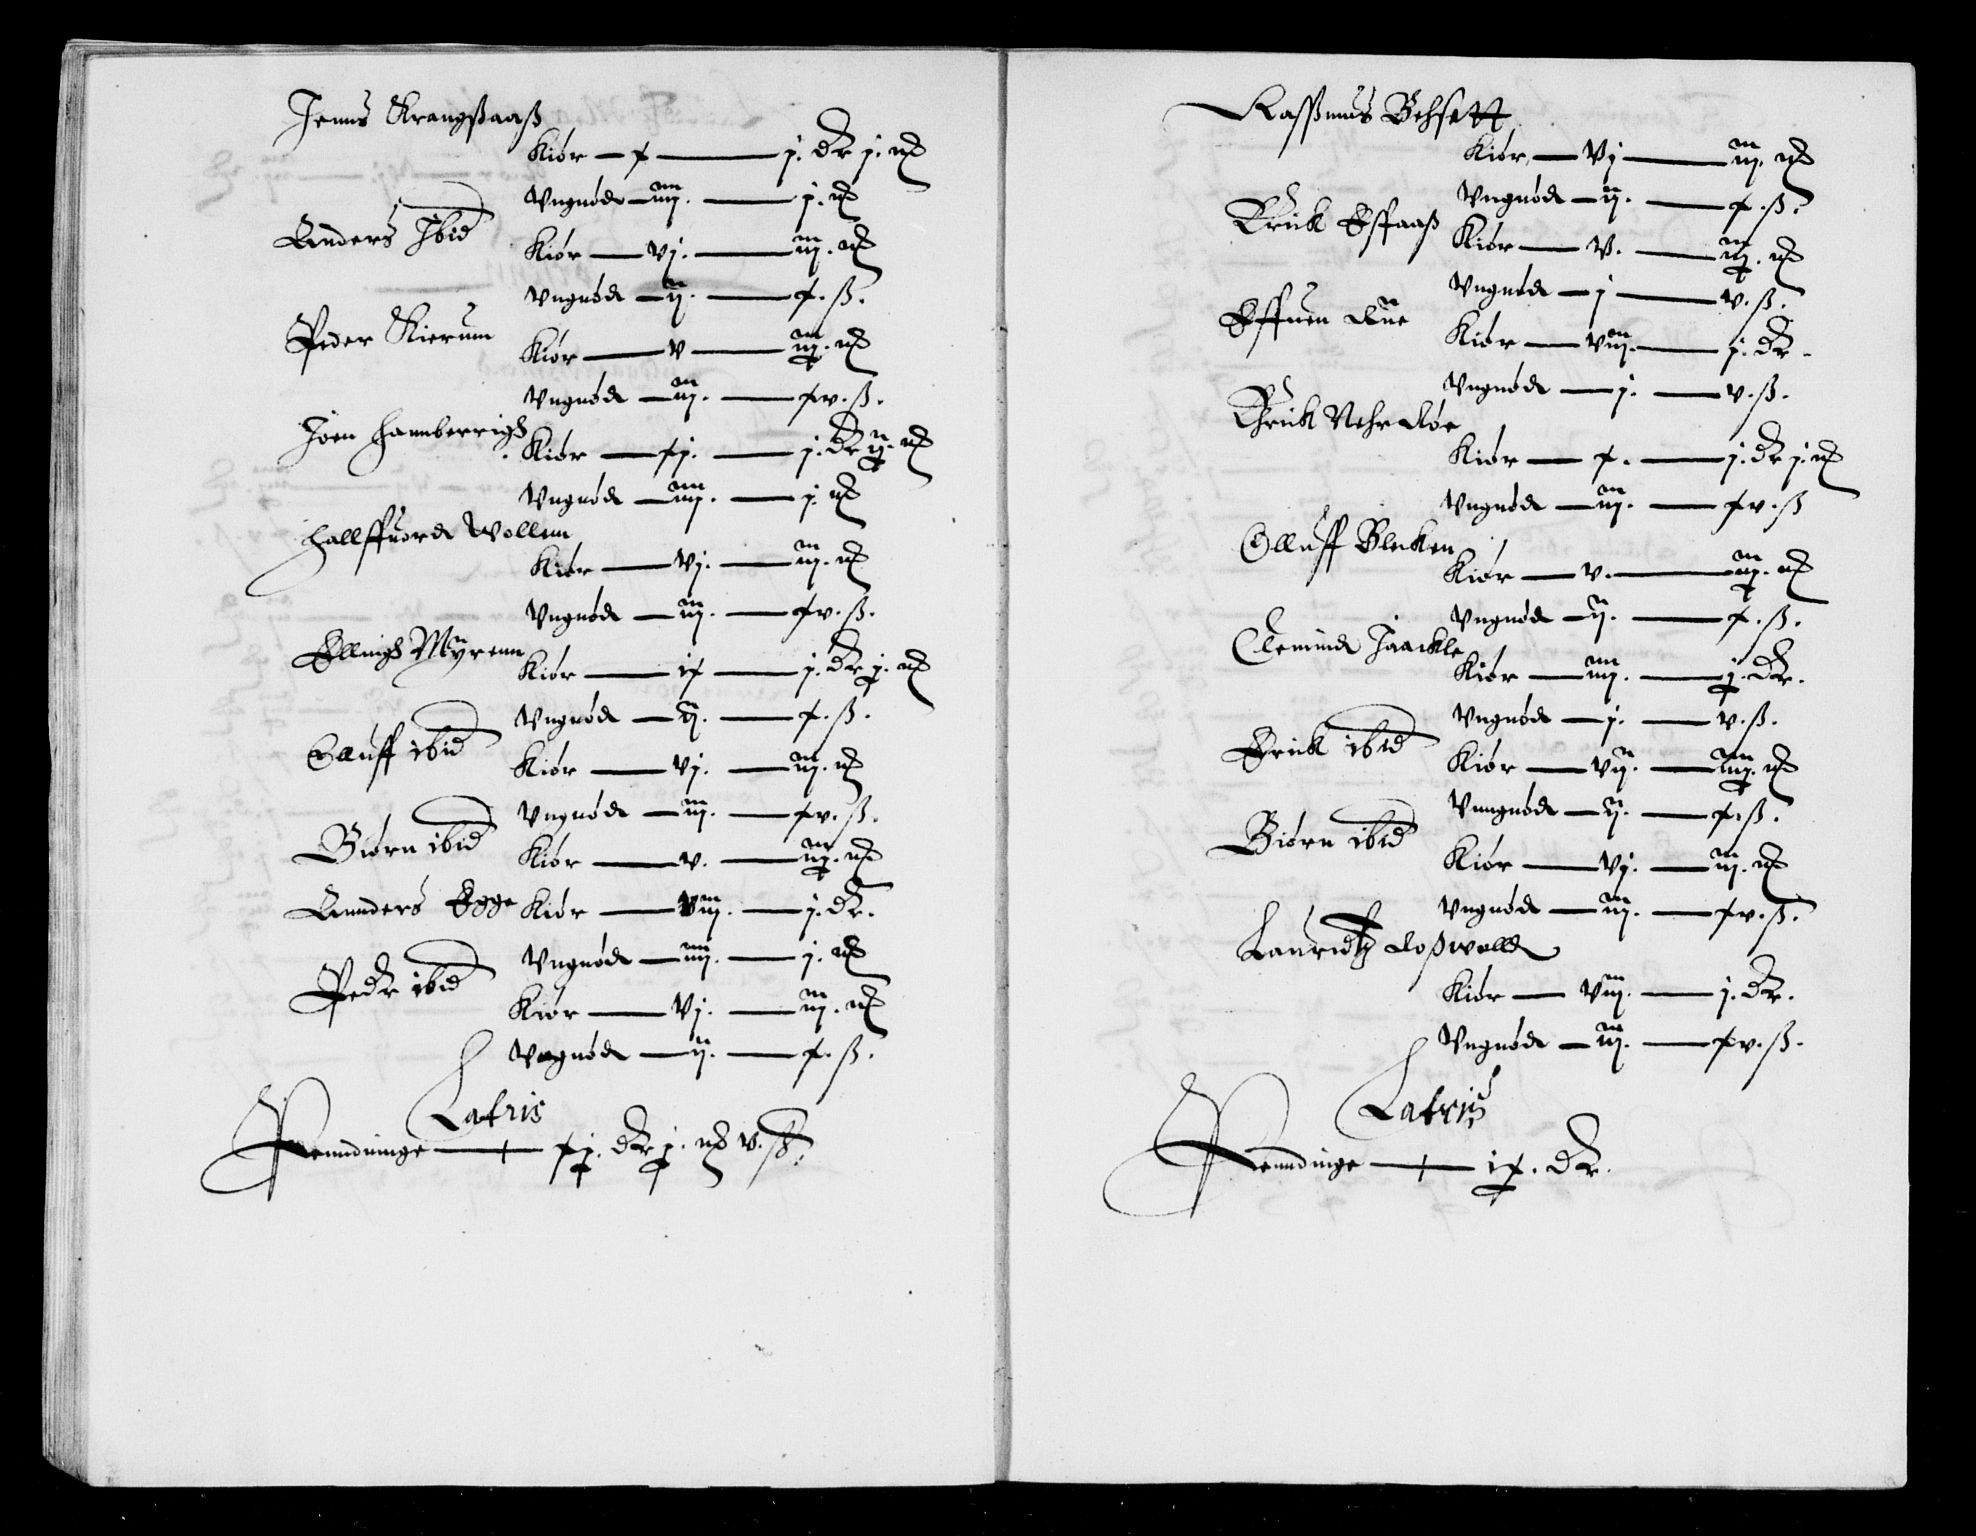 Jenns Krangsaaß
Kiör — x — j. dr j. mk
Vngnöd — iiij. — j. mk
Anders Ibid
Kiör — vj. — iij. mk
Vngnöd — ij. — x. ß.
Peder Kierum
Kiör — v — iij. mk
Vngnöd — iij. — xv. ß.
Joen hamberrigh
Kiör — xj. — j. dr ij. mk
Vngnöd — iiij. — j. mk
Hallffuord Wollem
Kiör — vj. — iij. mk
Vngnöd — iij. — xv. ß.
Ellingh Myrenn
Kiör — ix — j. dr j. mk
Vngnöd — ij. — x. ß.
Olluff ibid
Kiör — vj. — iij. mk
Vngnöd — iij. — xv. ß.
Biörn ibid
Kiör — v. — iij. mk
Annders Egge Kiör — viij. — j. dr.
Vngnöd — iiij. — j. mk
Pedr ibid
Kiör — vj. — iij. mk
Vngnöd — ij. — x. ß.
Latris
Penndninge — xj. dr j. mk v. ß.
Rassmus Behsett
Kiör — vj — iij. mk
Vngnöd — ij. — x. ß.
Erick Effaaß
Kiör — v. — iij. mk
Vngnöd — j — v. ß.
Effuen
Kiör — viij. — j. dr.
Vngnöd — j. — v. ß.
Erick Nehr
Kiör — x. — j. dr j. mk
Vngnöd — iij. — xv. ß
Olluff Bleken
Kiör — v. — iij. mk
Vngnöd — ij. — x. ß.
Clemind Jaackle
Kiör — iiij. — j. dr.
Vngnöd — j. — v. ß.
Erick ibid
Kiör — vij. — iiij. mk
Vnngnöd — ij. — x. ß.
Biörn ibid
Kiör — vj. — iij. mk
Vngnöd — iij. — xv. ß.
Lauridtz
Kiör — viij. — j. dr.
Vngnöd — iij. — xv. ß.
Latris
Penndinge — ix. dr.